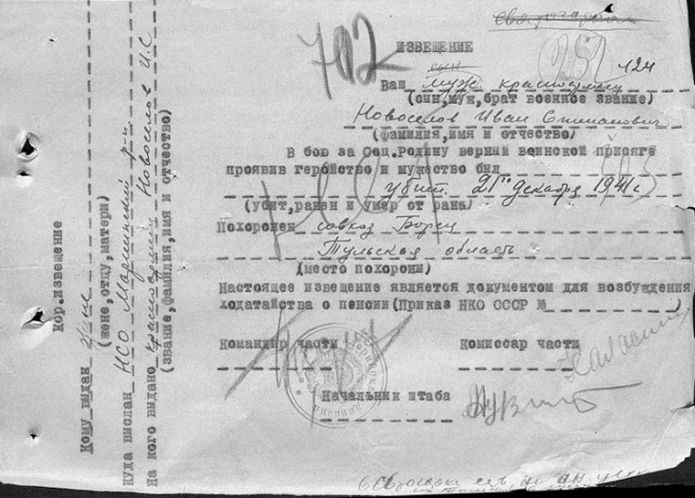 702
ИЗВЕЩЕНИЕ
252 124
Ваш муж красноармеец
(сын, муж, брат военное звание)
Новоселов Иван Степанович
(фамилия, имя и отчество)
В бою за Соц.Родину верный воинской присяге
проявив геройство и мужество был
убит 21го декабря 1941 г.
(убит, ранен и умер от рана)
Похоронен совхоз Борец
Тульская область
(место похороны)
Настоящее извещение является документом для возбуждения
ходатайства о пенсии(Приказ НКО СССР №
Командир части Комиссар части
Начальник штаба
Кор.извещение
Кому выдан жене
(жене, отцу, матери)
куда выслан НСО Мариинский р-н
на кого выдано красноармеец Новоселов И.С
(звание, фамилия, имя и отчество)